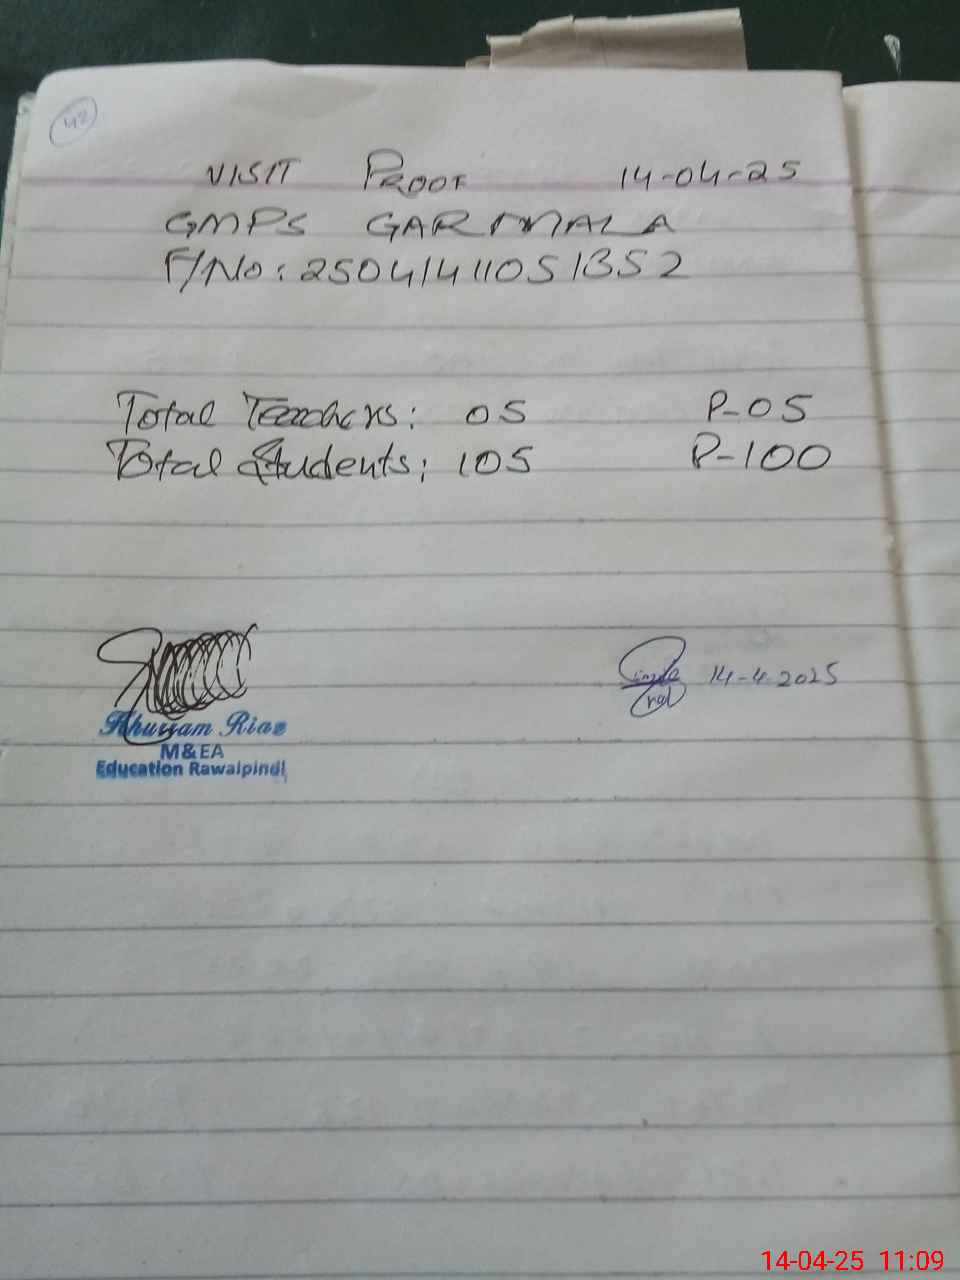 42
VISIT PROOF 14-04-25
GMPS GARMALA
F/No: 25041411051352
Total Teachers: 05 P-05
Total Students: 105 P-100
14-4-2025
Khurram Riaz
M&EA
Education Rawalpindi
14-04-25 11:09